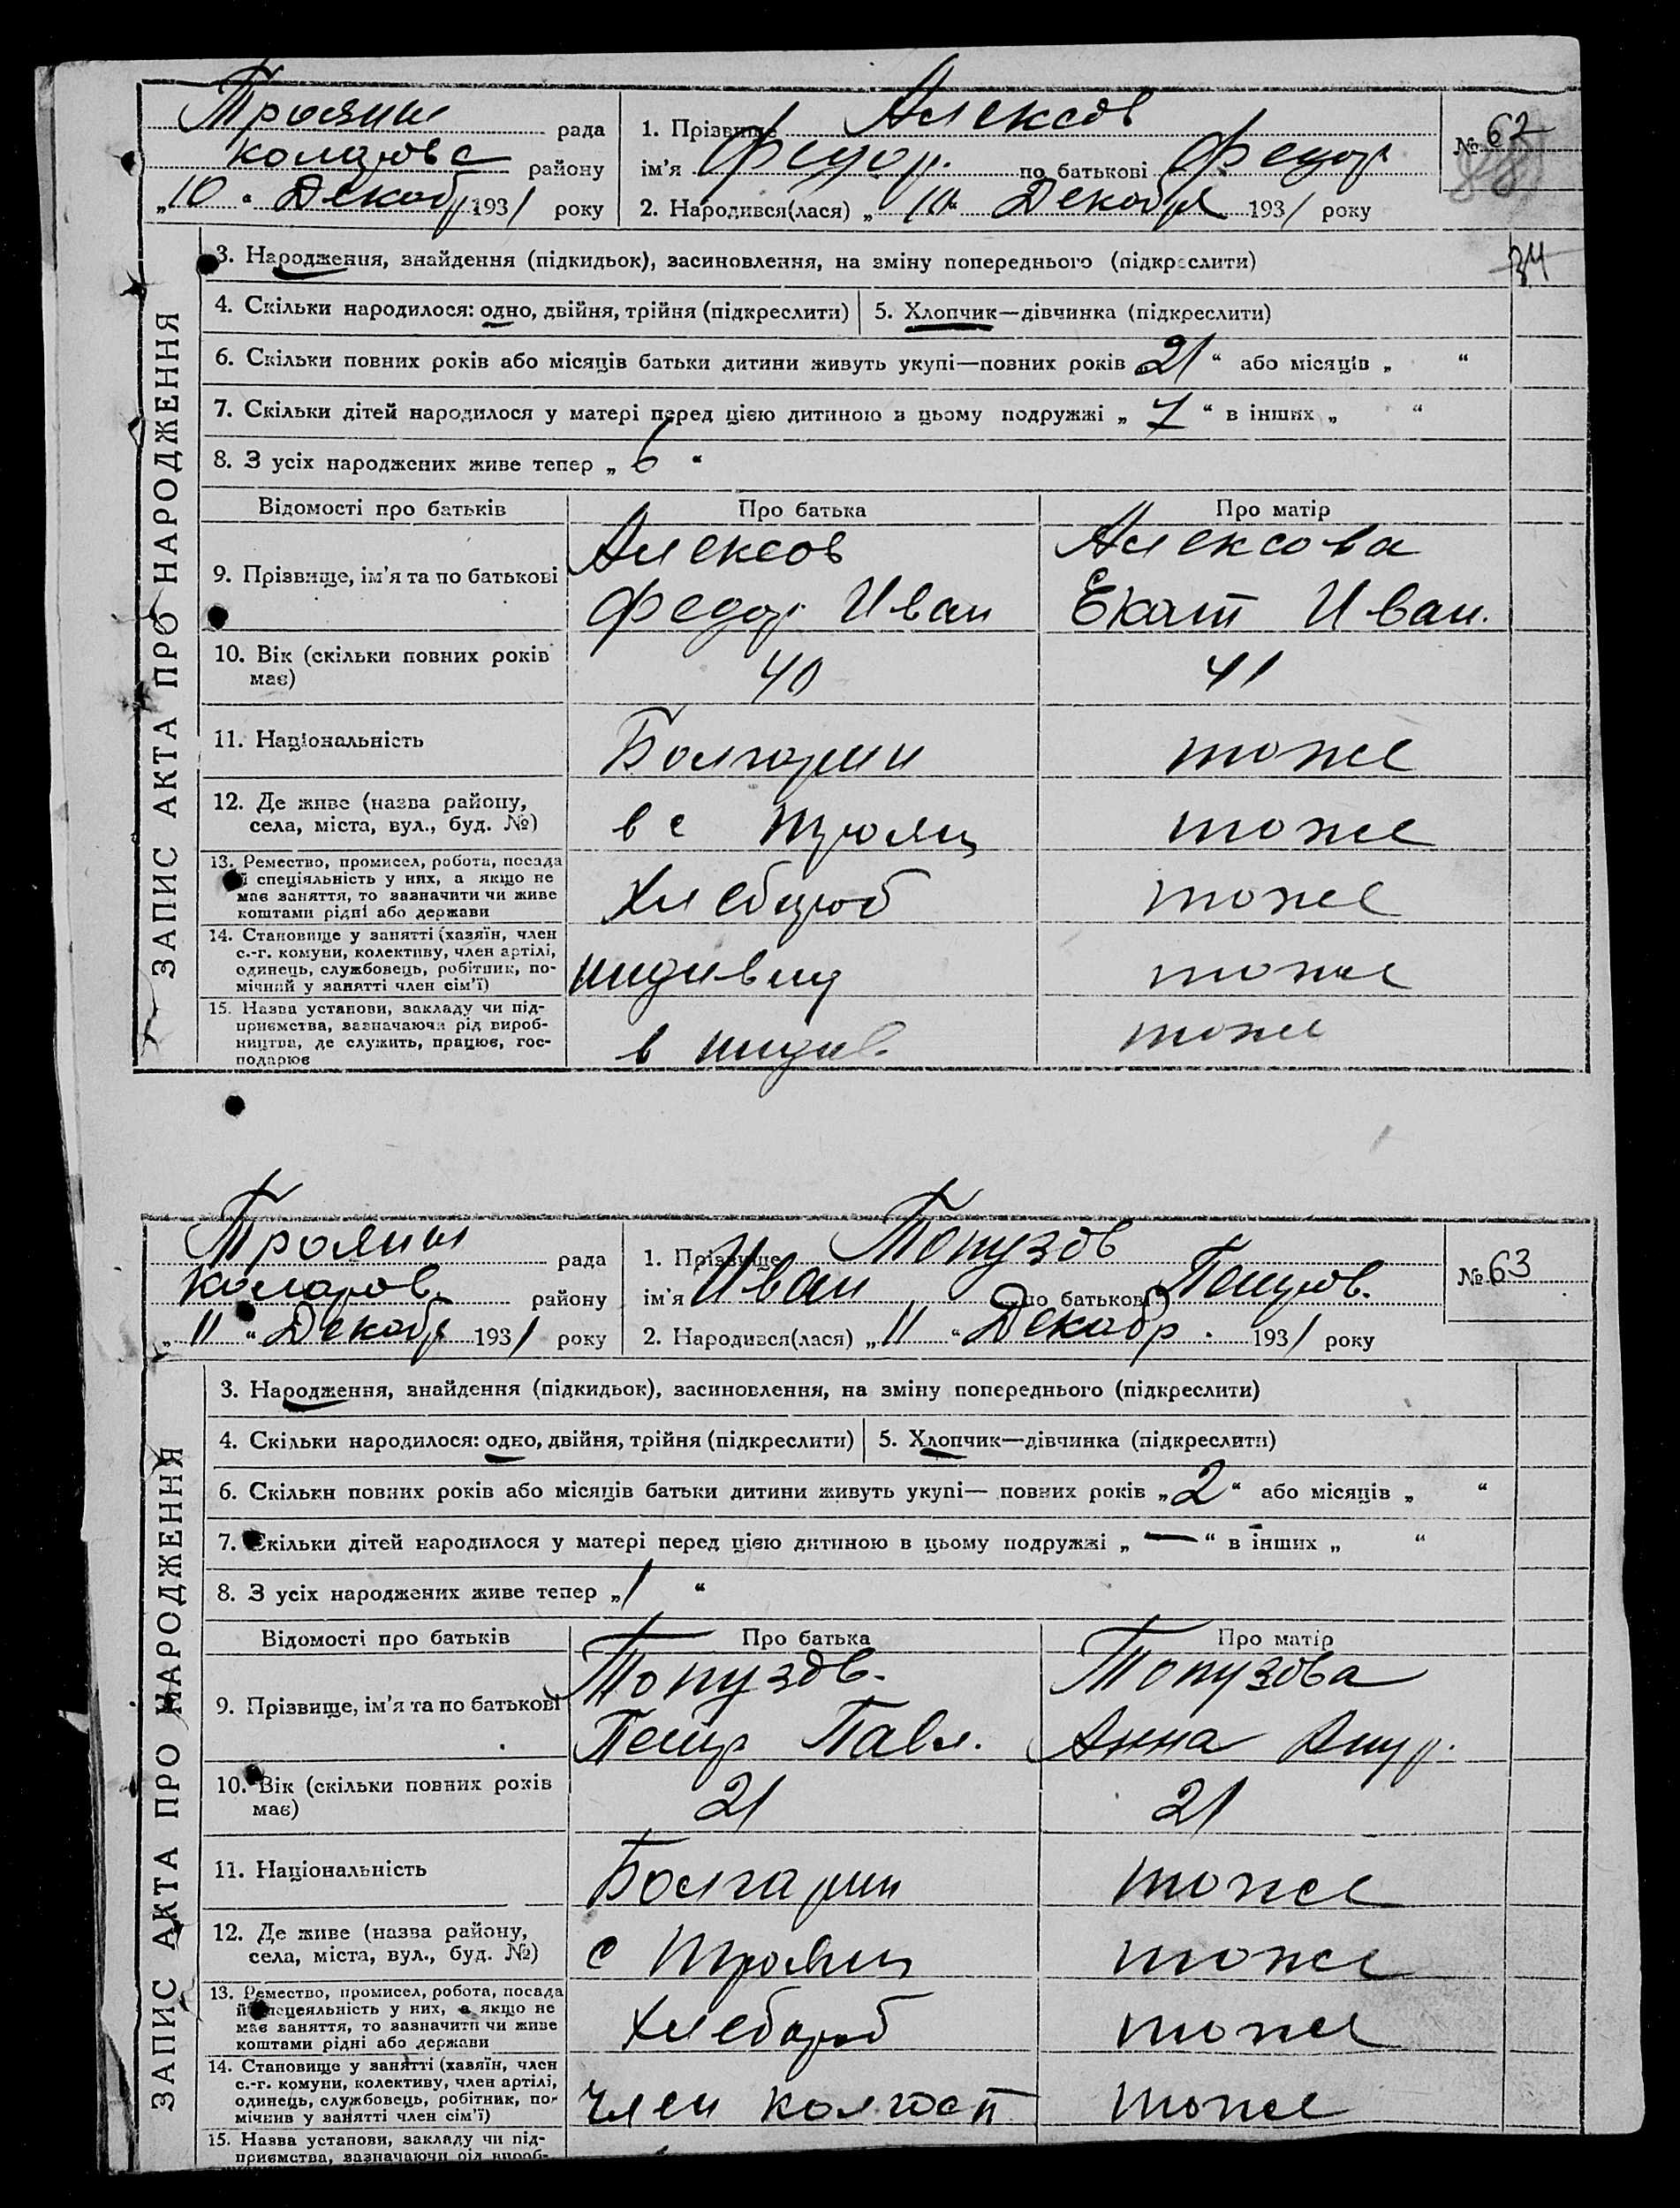 Троянш рада
Коларовс району
„10" Декабр 1931 року
1. Прізвище Алексов
ім'я Федор. по батькові Федор
2. Народився(лася) „10" Декабря 1931 року
№ 62
34
ЗАПИС АКТА ПРО НАРОДЖЕННЯ
3. Народження, знайдення (підкидьок), засиновлення, на зміну попереднього (підкреслити)
4. Скільки народилося: одно, двійня, трійня (підкреслити)
5. Хлопчик—дівчинка (підкреслити)
6. Скільки повних років або місяців батьки дитини живуть укупі—повних років „21" або місяців „ "
7. Скільки дітей народилося у матері перед цією дитиною в цьому подружжі „7" в інших „ "
8. З усіх народжених живе тепер „6"
Відомості про батьків Про батька Про матір
9. Прізвище, ім'я та по батькові
Алексов
Федор Иван
Алексова
Екат Иван.
10. Вік (скільки повних років
має)
40 41
11. Національність Болгарин тоже
12. Де живе (назва району,
села, міста, вул., буд. №)
в с Троян тоже
13. Ремество, промисел, робота, посада
й спеціяльність у них, а якщо не
має заняття, то зазначити чи живе
коштами рідні або держави
Хлебороб тоже
14. Становище у занятті (хазяїн, член
с.-г. комуни, колективу, член артілі,
одинець, службовець, робітник, по-
мічний у занятті член сім'ї)
индивид тоже
15. Назва установи, закладу чи під-
приємства, зазначаючи рід вироб-
ництва, де служить, працює, гос-
подарює
в индив. тоже
Троянш рада
Коларов. району
„11" Декабр 1931 року
1. Прізвище Топузов
ім'я Иван по батькові Петров.
2. Народився(лася) „11" Декабр. 1931 року
№ 63
ЗАПИС АКТА ПРО НАРОДЖЕННЯ
3. Народження, знайдення (підкидьок), засиновлення, на зміну попереднього (підкреслити)
4. Скільки народилося: одно, двійня, трійня (підкреслити)
5. Хлопчик—дівчинка (підкреслити)
6. Скільки повних років або місяців батьки дитини живуть укупі— повних років „2" або місяців „ "
7. Скільки дітей народилося у матері перед цією дитиною в цьому подружжі „—" в інших „ "
8. З усіх народжених живе тепер „1 "
Відомості про батьків Про батька Про матір
9. Прізвище, ім'я та по батькові
Топузов.
Петр Павл.
Топузова
Анна
10. Вік (скільки повних років
має)
21 21
11. Національність Болгарин тоже
12. Де живе (назва району,
села, міста, вул., буд. №)
с Троян тоже
13. Ремество, промисел, робота, посада
й спецеяльність у них, а якщо не
має заняття, то зазначити чи живе
коштами рідні або держави
Хлебороб тоже
14. Становище у занятті (хазяїн, член
с.-г. комуни, колективу, член артілі,
одинець, службовець, робітник, по-
мічнив у занятті член сім'ї)
член колгосп тоже
15. Назва установи, закладу чи під-
приємства, зазначаючи рід вироб-